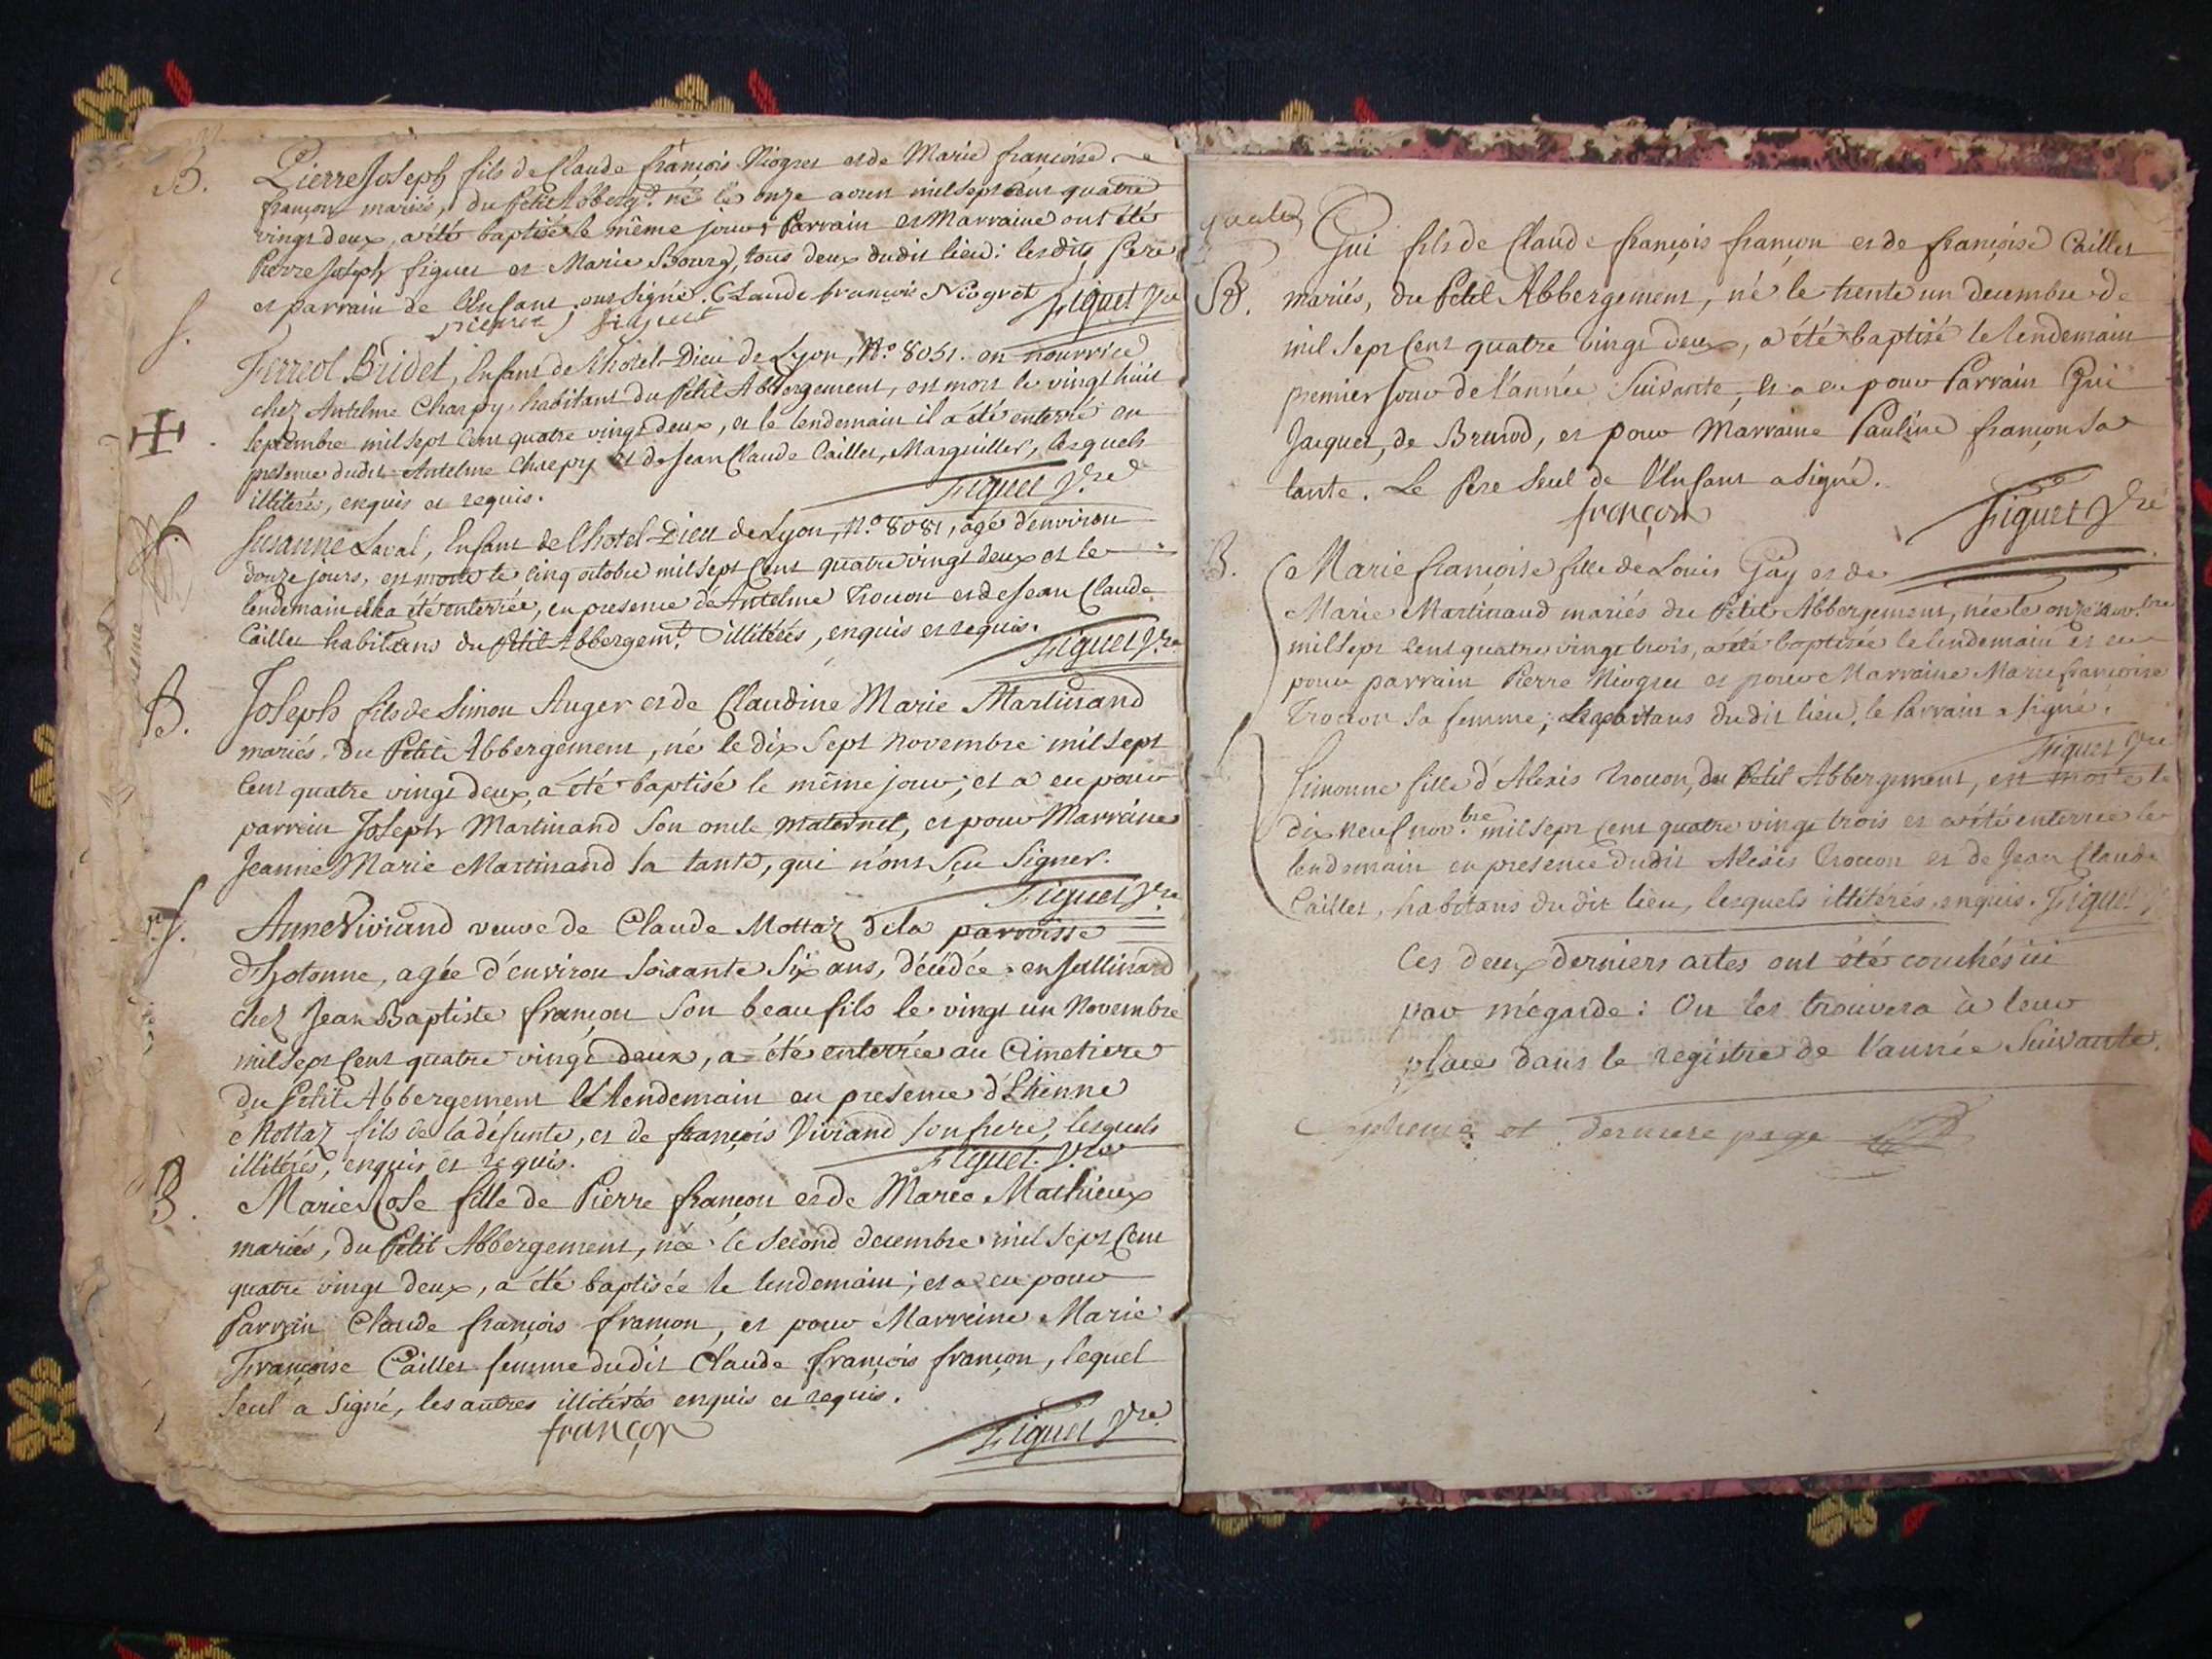 B. Pierre Joseph fils de Claude françois Niogret et de Marie françoise
françon mariés, du Petit Abbergt. né le onze aoust mil sept cent quatre
vingt deux, a été baptisé le même jour; Parrain et Marraine ont été
Pierre Joseph figuet et Marie Bourg, tous deux dudit lieu: lesdits Pere
et parrain de l'Enfant ont signé. Claude françois Niogret Figuet Vre
pierre J figuet
S. Ferreol Bridet, Enfant de l'hotel-Dieu de Lyon, N.° 8051. en nourrice
chez Antelme Charpy, habitant du Petit Abbergement, est mort le vingt huit
septembre mil sept cent quatre vingt deux, et le lendemain il a été enterré en
presence dudit Antelme Charpy et de Jean Claude Caillet, Marguillier, lesquels
illitérés, enquis et requis. Figuet Vre
S. Susanne Laval, Enfant de l'hotel-Dieu de Lyon, N.° 8081, agé d'environ
douze jours, est morte le cinq octobre mil sept cent quatre vingt deux et le
lendemain elle a été enterrée, en presence de Antelme Trocon et de Jean Claude
Caillet habitans du Petit Abbergemt. illitérés, enquis et requis. Figuet Vre
B. Joseph fils de Simon Auger et de Claudine Marie Martinand
mariés, du Petit Abbergement, né le dix sept novembre mil sept
Cent quatre vingt deux, a été baptisé le même jour; et a eu pour
parrein Joseph Martinand son oncle maternel, et pour Marreine
Jeanne Marie Martinand sa tante, qui n'ont sçu signer.
Figuet Vre
S. Anne Viviand veuve de Claude Mottaz de la parroisse
d'hotonne, agée d'environ soixante six ans, décédée en Jallinard
chez Jean Baptiste françon son beau fils le vingt un Novembre
mil sept Cent quatre vingt deux, a été enterrée au Cimetiere
du Petit Abbergement le lendemain en presence d'Etienne
Mottaz fils de la défunte, et de françois Viviand son frere, lesquels
illitérés, enquis et requis. Figuet Vre
B. Marie Rose fille de Pierre françon et de Marie Mathieux
mariés, du Petit Abbergement, née le second decembre mil sept Cent
quatre vingt deux, a été baptisée le lendemain; et a eu pour
Parrein Claude françois françon, et pour Marreine Marie
Françoise Caillet femme dudit Claude françois françon, lequel
seul a signé, les autres illitérés enquis et requis.
françon Figuet Vre
Gui fils de Claude françois françon et de françoise Caillet
mariés, du Petit Abbergement, né le trente un decembre de
mil sept Cent quatre vingt deux, a été baptisé le lendemain
premier jour de l'année suivante, et a eu pour Parrain Gui
Jaquet, de Brenod, et pour Marraine Pauline françon sa
tante. Le Pere seul de l'Enfant a signé.
françon Figuet Vre
B. Marie françoise fille de Louis Gay et de
Marie Martinaud mariés du Petit Abbergement, née le onze novbre
mil sept cent quatre vingt trois, a été baptisée le lendemain et eu
pour parrain Pierre Niogret et pour Marraine Marie françoise
Trocon sa femme; habitans dudit lieu, le Parrain a signé.
Figuet Vre
Simonne fille d'Alexis Trocon, du Petit Abbergement, est morte le
dix neuf nov.bre mil sept Cent quatre vingt trois et a été enterrée le
lendemain en presence dudit Alexis Trocon et de Jean Claude
Caillet, habitans dudit lieu, lesquels illitérés enquis. Figuet
Ces deux derniers actes ont été couchés ici
par mégarde: On les trouvera à leur
place dans le registre de l'année suivante.
et derniere page